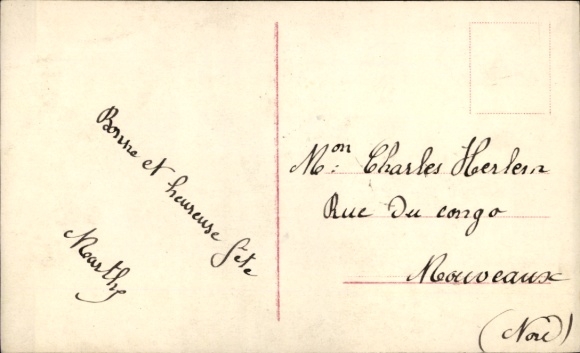 Bonne et heureuse fête
Marthe
Mon: Charles Herlem
Rue Du congo
Mouveaux
(Nord)